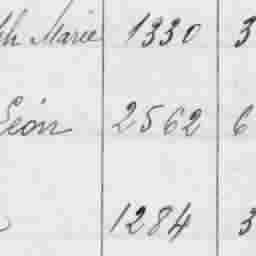 Marie 1330 3
Léon 2562 6
1284 3